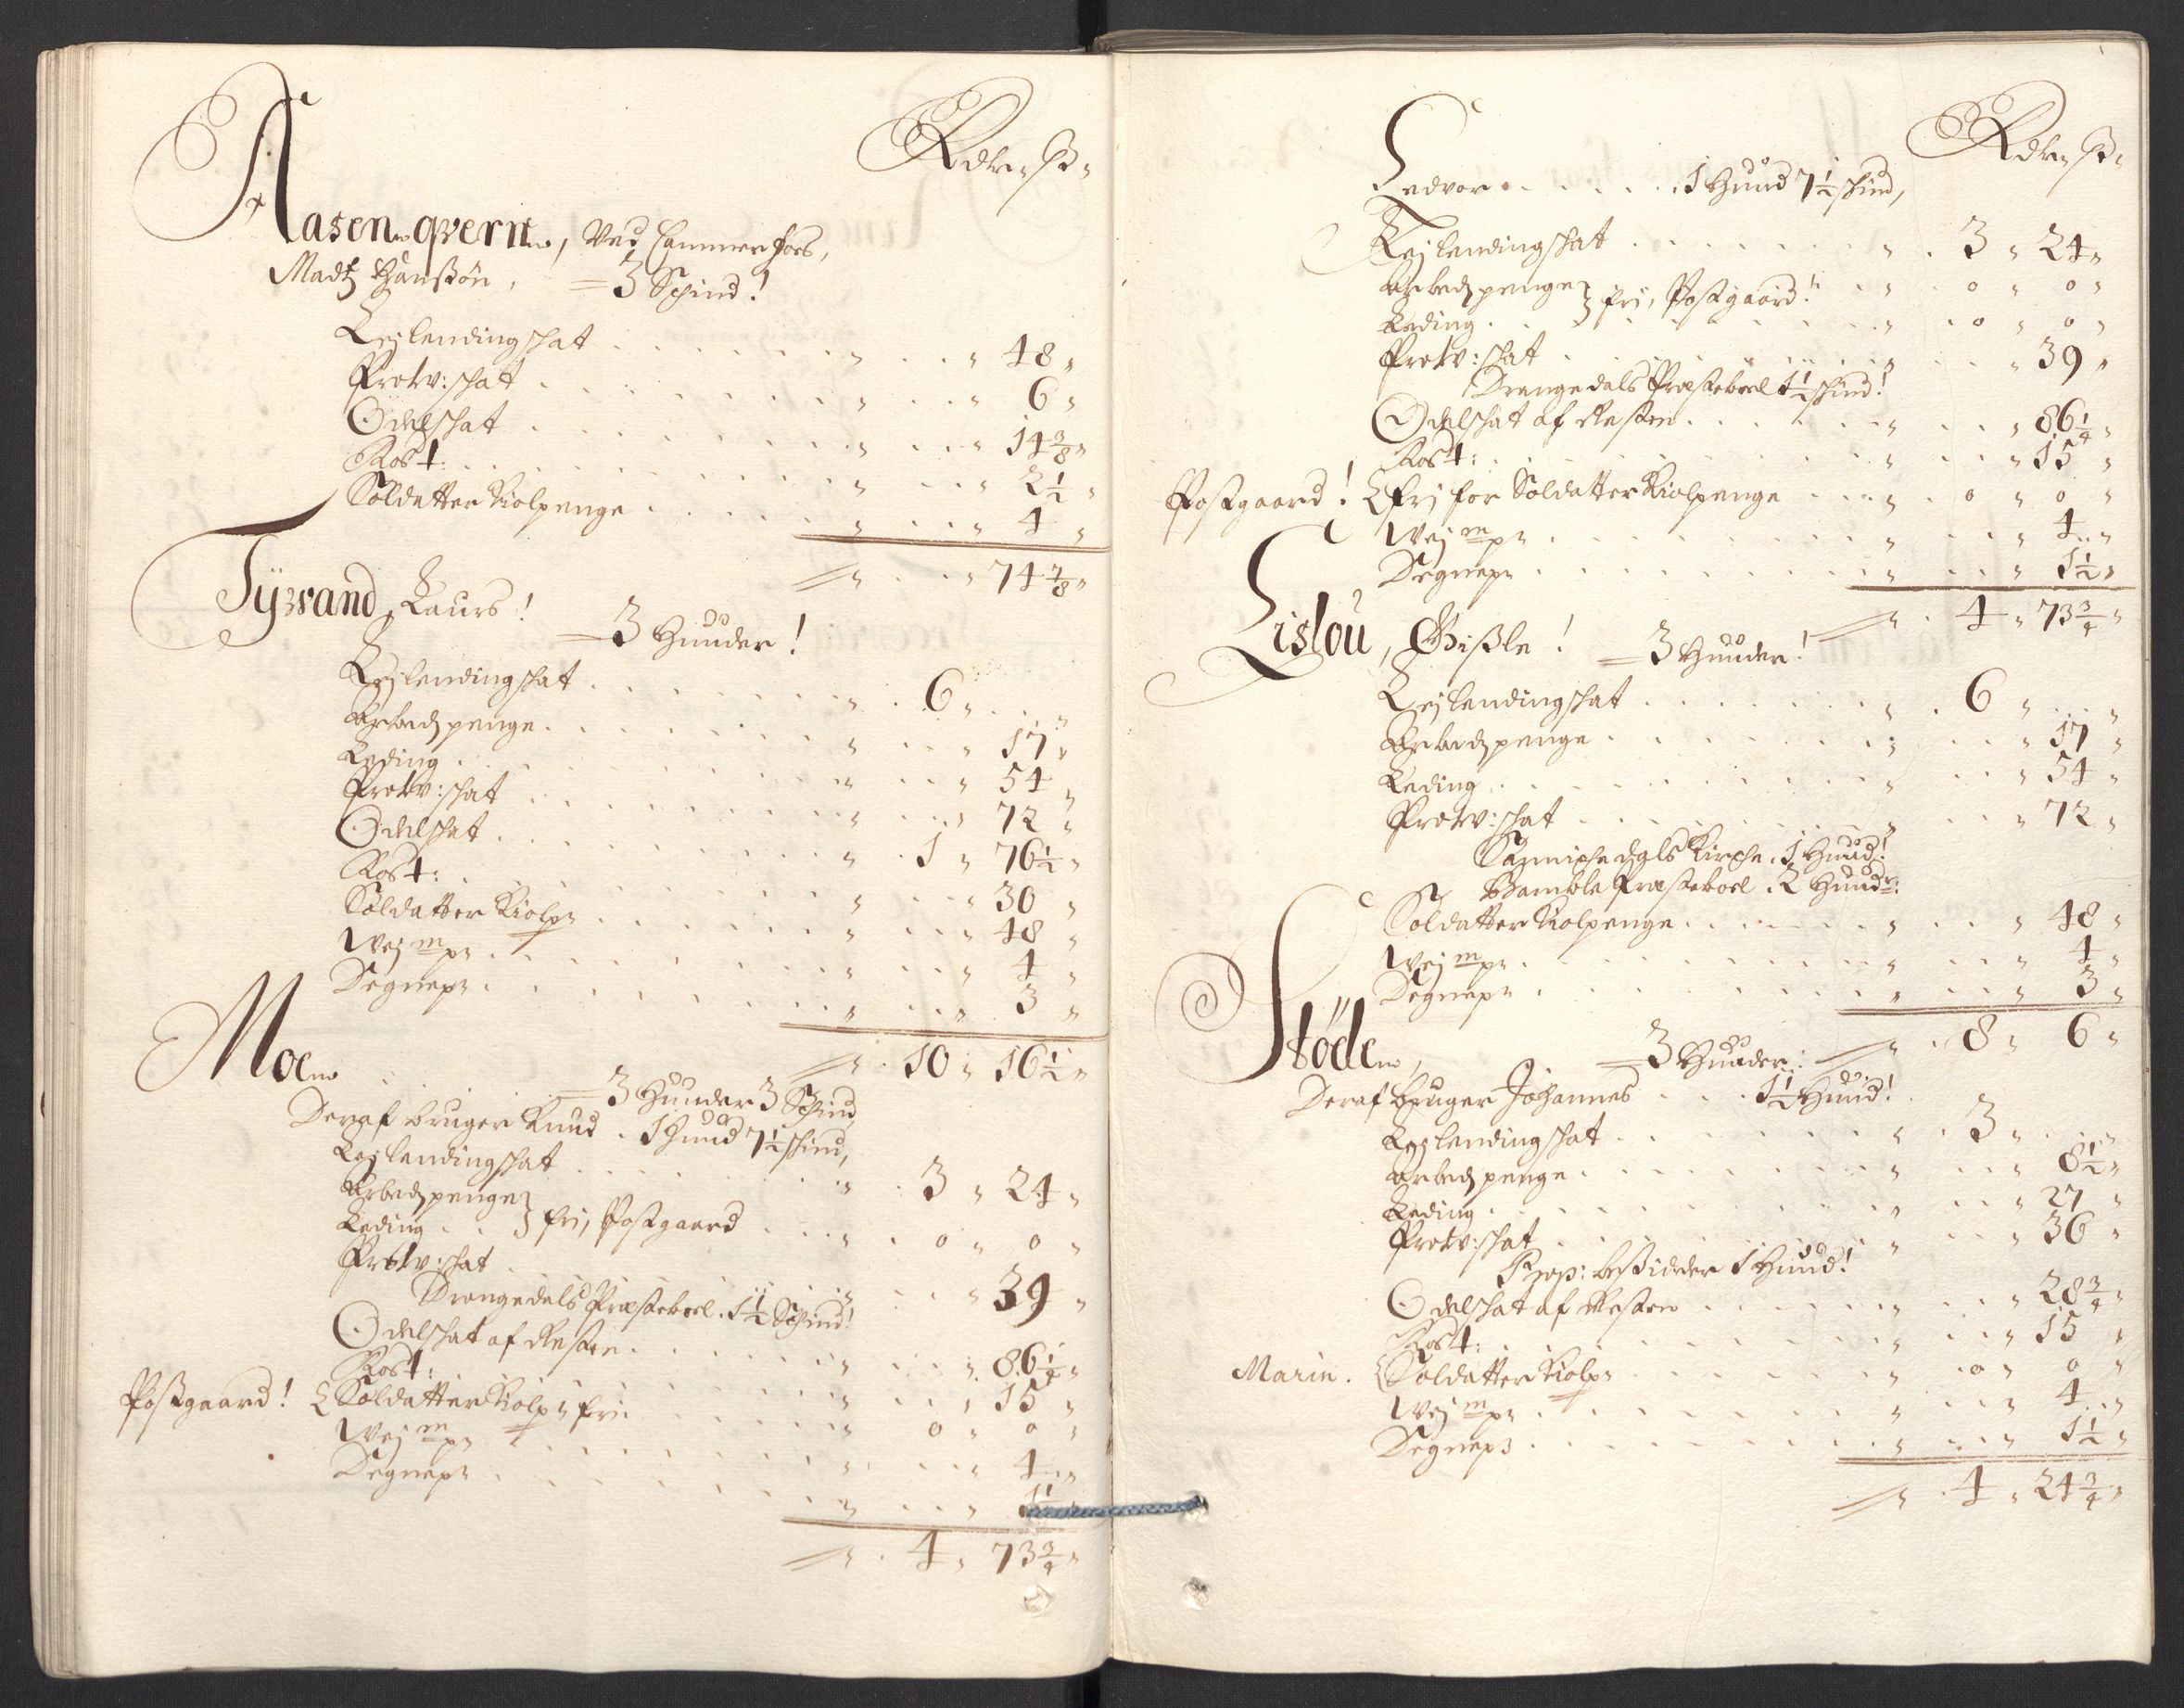 Rdlr. ß.
Aasen qvern, Ved Cammerfors,
Madtz Hanssön, = 3 Schind!
Leilendingschat . . . 48
Prov: schat . . . 6
Odelschat . . . 14 3/8
Rost: . . . 2 1/2
Soldatter Kiolpenge . . . 4
74 7/8
Tyvand, Laurs! = 3 Huuder!
Leilendingschat . . . 6
Arbedzpenge . . . 17
Leding . . . 54
Prov: schat . . . 72
Odelschat . . . 1 76 1/2
Rost: . . . 30
Soldatter Kiolp . . . 48
Vej m p . . . 4
Degnep . . . 3
10 16 1/2
Moe . . . = 3 Huuder 3 Schind,
Deraf bruger Knud . 1 Huud 7 1/2 schind,
Leilendingschat . . . 3 24
Arbedzpenge
Leding . . } fri, Postgaard . . . 0 0
Prov: schat . . . 39
Drangedals Præsteboel . 1 1/2 Schind!
Odelschat af Resten . . . 86 1/4
Rost: . . . 15
Postgaard! { Soldatter Kiolp fri . . . 0 0
Vej m p . . . 4
Degnep . . . 1 1/2
4 73 3/4
Rdlr. ß.
Ledvor . . . 1 Huud 7 1/2 schind,
Leilendingschat . . . 3 24
Arbedzpenge } fri, Postgaard! . . 0 0
Leding . . . 0 0
Prov: schat . . . 39
Drangedals Præsteboel 1 1/2 schind!
Odelschat af Resten . . . 86 1/4
Rost: . . . 15
Postgaard! { fri for Soldatter Kiolpenge . . . 0 0
Vej m p . . . 4
Degnep . . . 1 1/2
4 73 3/4
Lislou, Gisle! = 3 Huuder!
Leilendingschat . . . 6
Arbedzpenge . . . 17
Leding . . . 54
Prov: schat . . . 72
Sannichedals Kirche . 1 Huud!
Bamble Præsteboel . 2 Huudr:
Soldatter Kiolpenge . . . 48
Vej m p . . . 4
Degnep . . . 3
8 6
Stöde, = 3 Huuder:
Deraf bruger Johannes . . . 1 1/2 Huud!
Leilendingschat . . . 3
Arbedzpenge . . . 8 1/2
Leding . . . 27
Prov: schat . . . 36
Prop: besidder 1 Huud!
Odelschat af Resten . . . 28 3/4
Rost: . . . 15
Marin. { Soldatter Kiolp . . . 0 0
Vej m p . . . 4
Degnep . . . 1 1/2
4 24 3/4